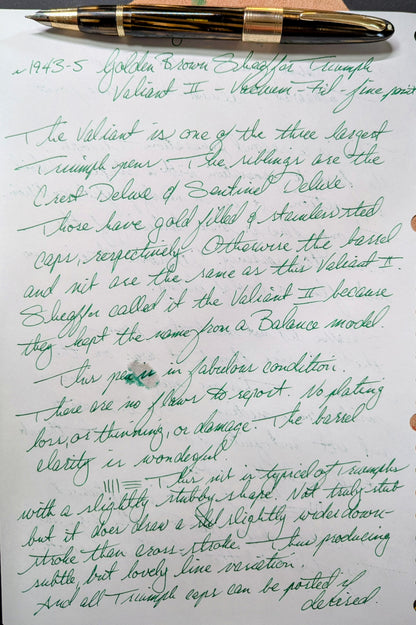 ~1943-5 Golden Brown Sheaffer Triumph
Valiant II - Vacuum-Fil - fine point
The Valiant is one of the three largest
Triumph pens. The siblings are the
Crest Deluxe & Sentinel Deluxe.
Those have gold filled & stainless steel
caps, respectively. Otherwise the barrel
and nib are the same as this Valiant II.
Sheaffer called it the Valiant II because
they kept the name from a Balance model.
This pen is in fabulous condition.
There are no flaws to report. No plating
loss, or thinning, or damage. The barrel
clarity is wonderful
This nib is typical of Triumphs
with a slightly stubby shape. Not truly stub
but it does draw a slightly wider down-
stroke than cross-stroke. Thus producing
subtle, but lovely line variation.
And all Triumph caps can be posted if
desired.